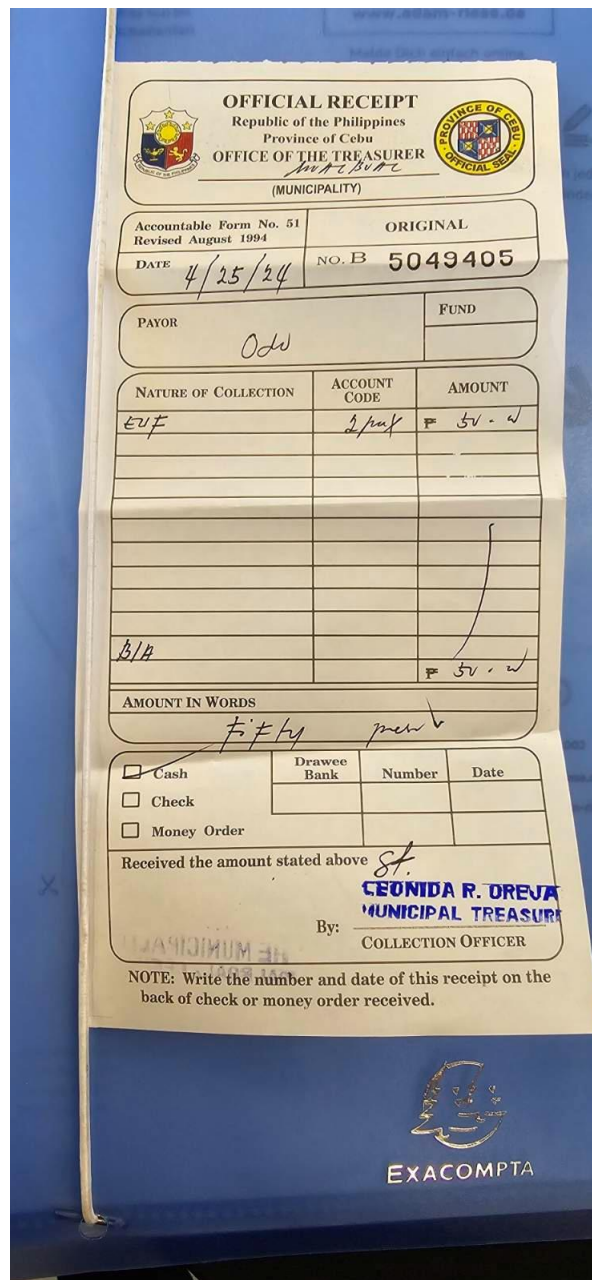 www.adam-riese.de
OFFICIAL RECEIPT
Republic of the Philippines
Province of Cebu
OFFICE OF THE TREASURER
(MUNICIPALITY)
REPUBLIC OF THE PHILIPPINES
PROVINCE OF CEBU
OFFICIAL SEAL
Accountable Form No. 51
Revised August 1994
ORIGINAL
DATE 4/25/24
NO. B 5049405
PAYOR
FUND
NATURE OF COLLECTION ACCOUNT CODE AMOUNT
EUF ₱ 50
B/A
₱ 50
AMOUNT IN WORDS
Fifty
Cash
Check
Money Order
Drawee Bank Number Date
Received the amount stated above
LEONIDA R. OREJA
MUNICIPAL TREASUR
By:
COLLECTION OFFICER
NOTE: Write the number and date of this receipt on the
back of check or money order received.
EXACOMPTA